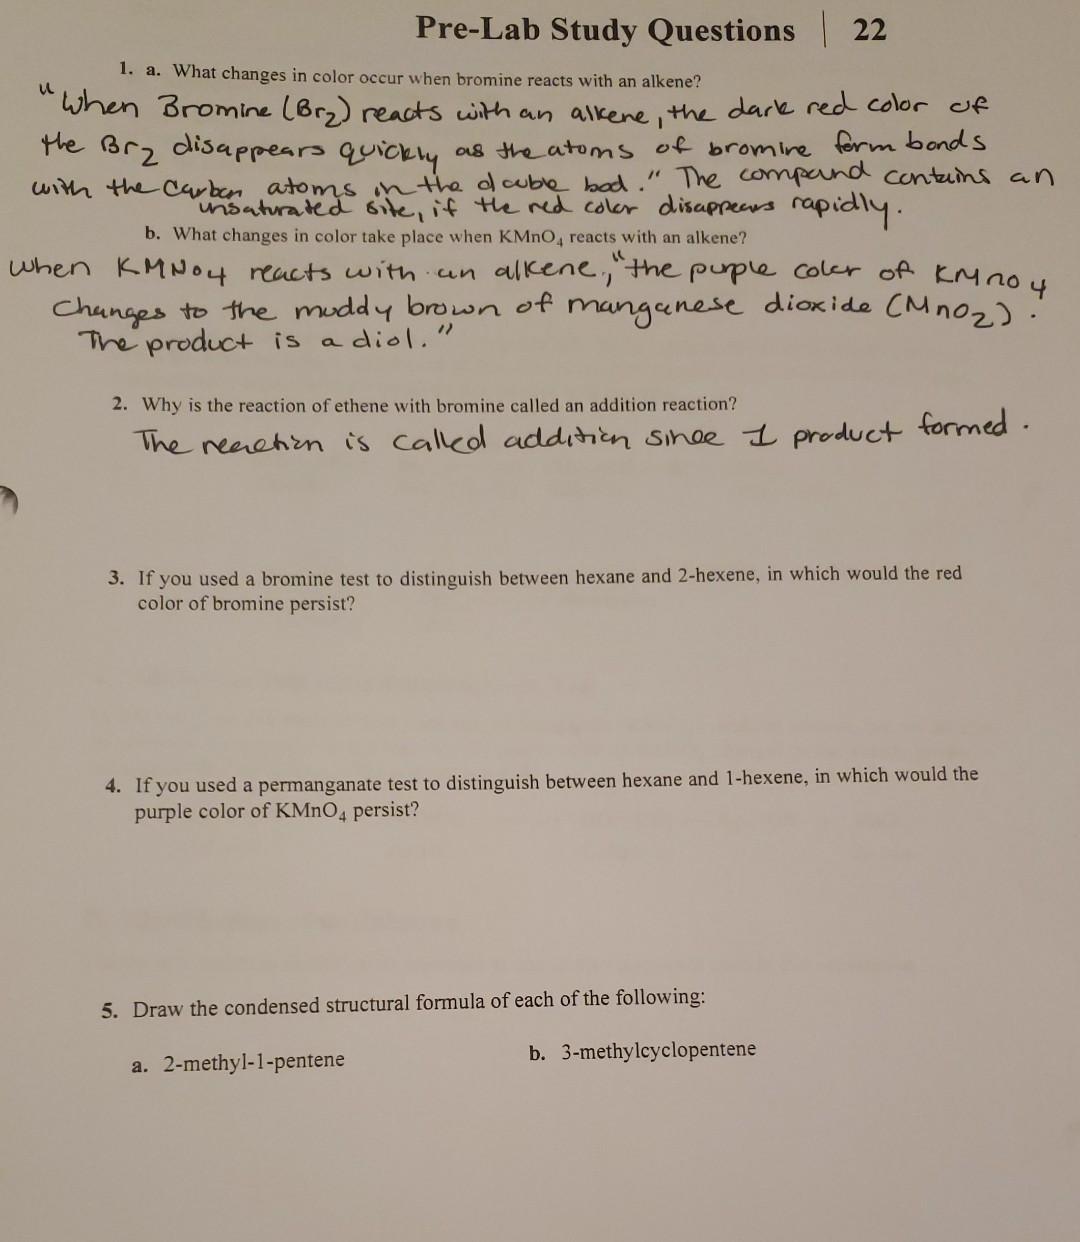 Pre-Lab Study Questions | 22
1. a. What changes in color occur when bromine reacts with an alkene?
"When Bromine (Br2) reacts with an alkene, the dark red color of
the Br2 disappears quickly as the atoms of bromine form bonds
with the Carbon atoms in the double bod." The compound contains an
unsaturated site, if the red color disappears rapidly.
b. What changes in color take place when KMnO4 reacts with an alkene?
When KMNO4 reacts with an alkene, "the purple color of KMnO4
Changes to the muddy brown of manganese dioxide (MnO2).
The product is a diol."
2. Why is the reaction of ethene with bromine called an addition reaction?
The reaction is called addition since 1 product formed.
3. If you used a bromine test to distinguish between hexane and 2-hexene, in which would the red
color of bromine persist?
4. If you used a permanganate test to distinguish between hexane and 1-hexene, in which would the
purple color of KMnO4 persist?
5. Draw the condensed structural formula of each of the following:
a. 2-methyl-1-pentene b. 3-methylcyclopentene